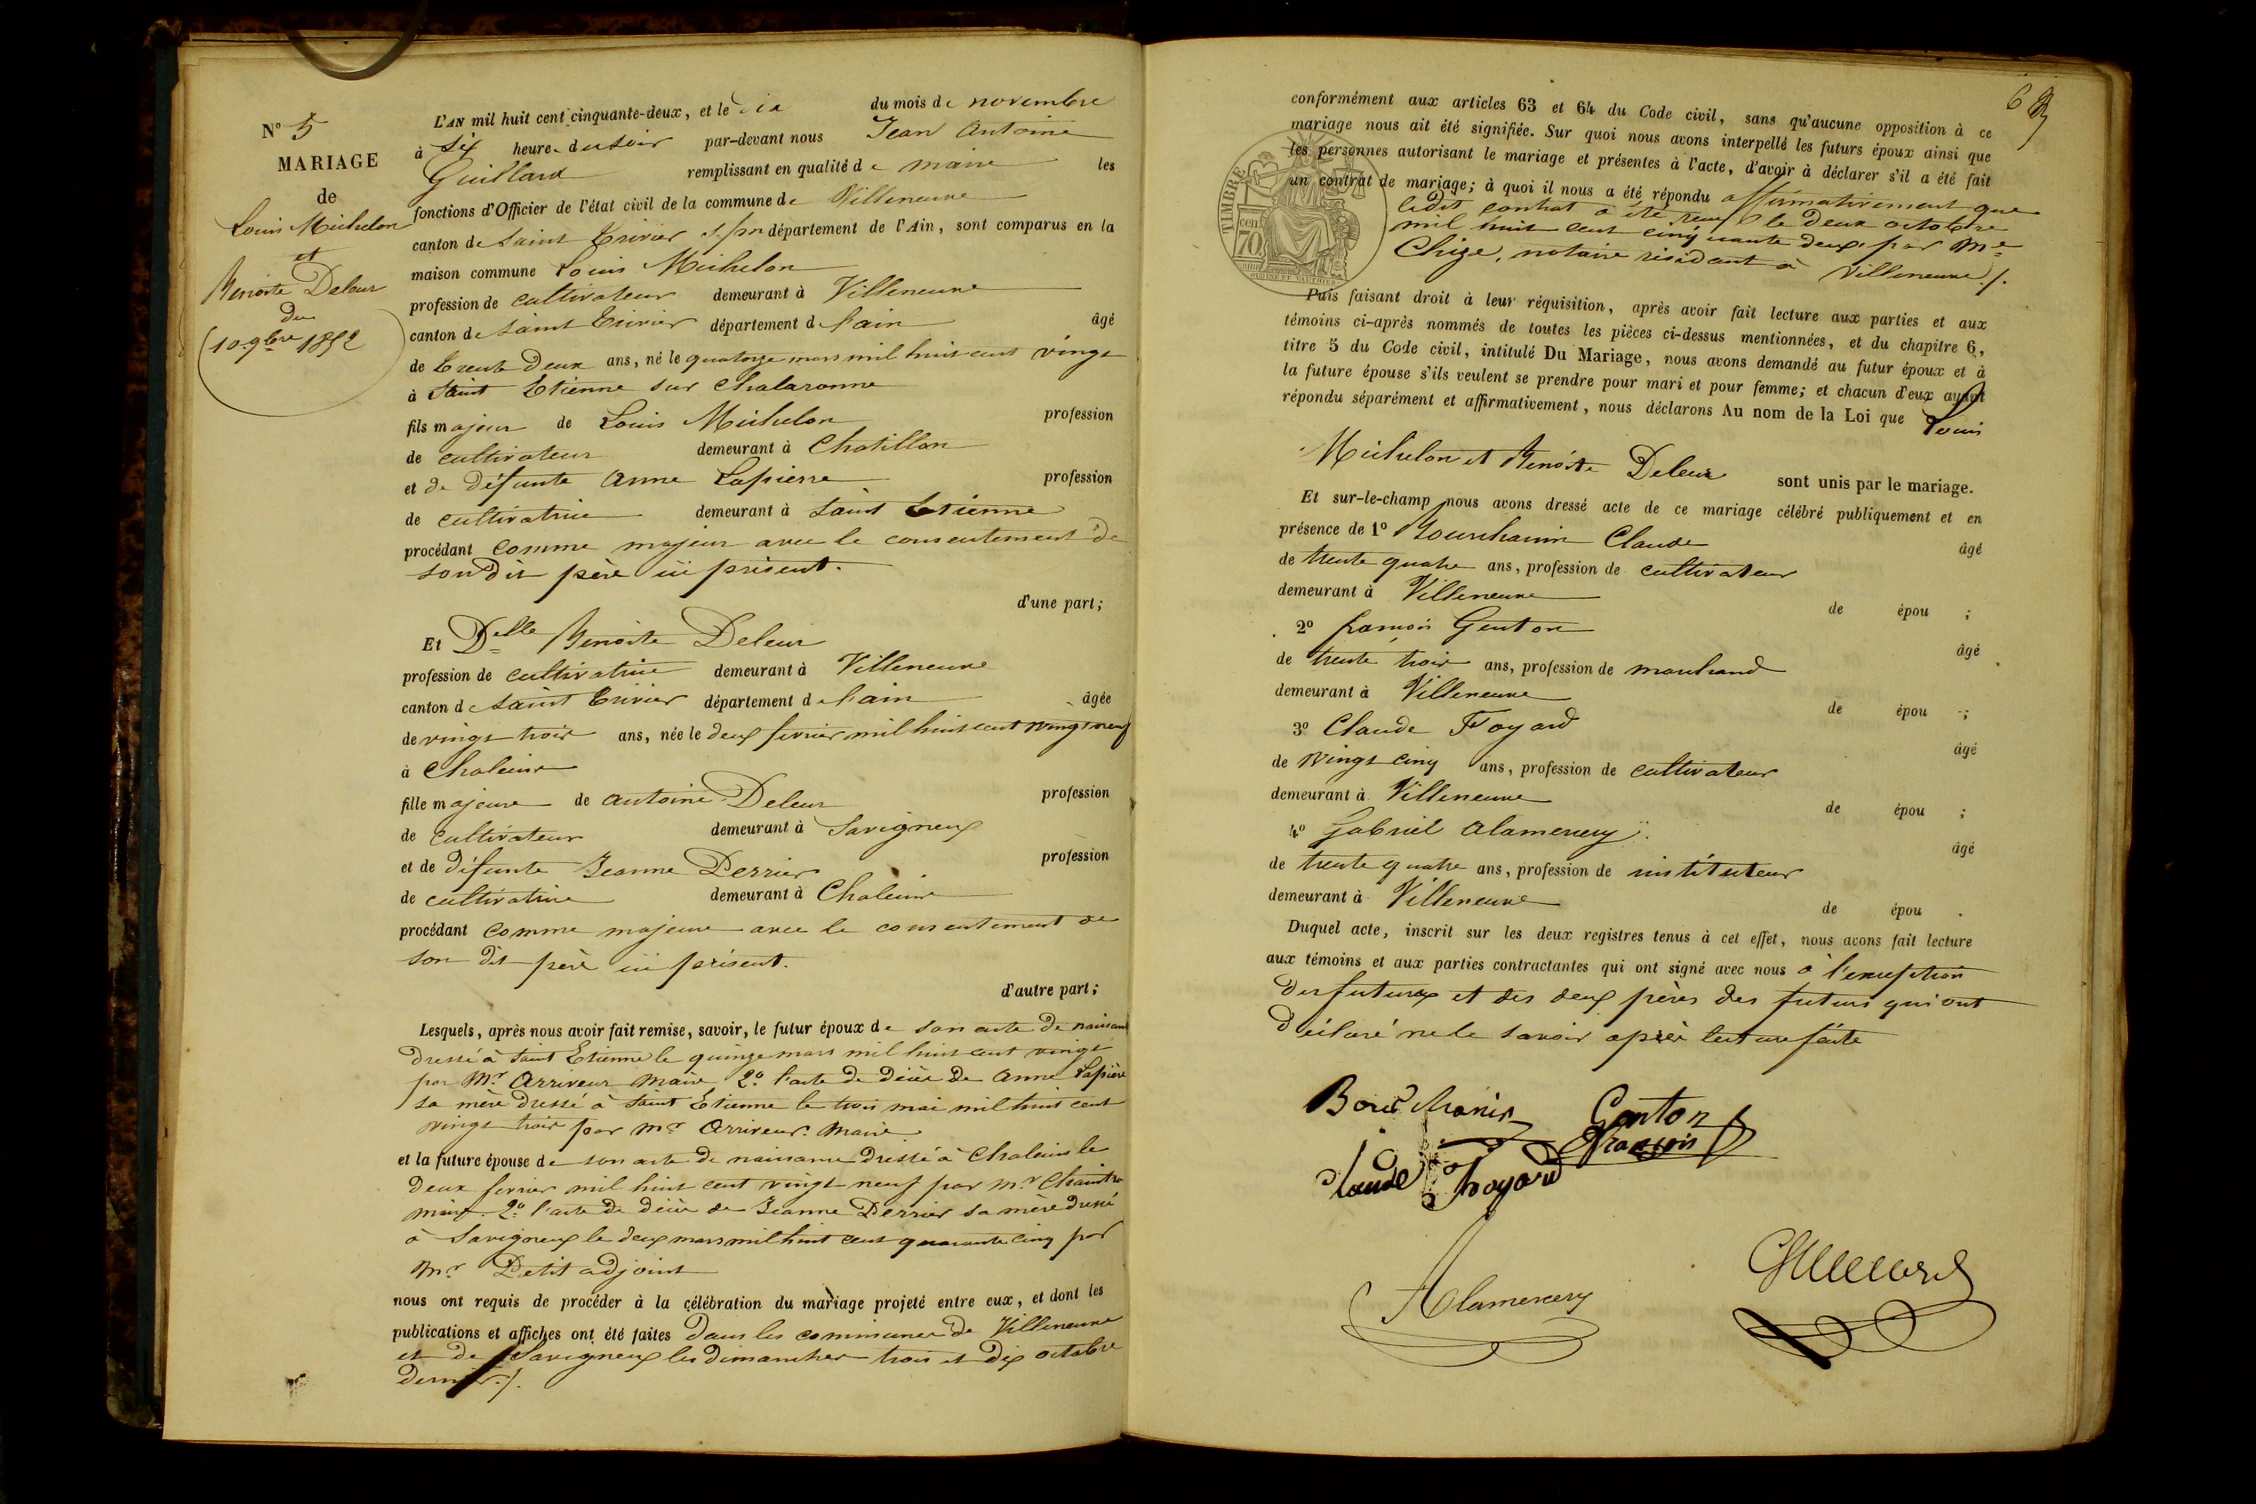 N° 5
MARIAGE
de
Louis Michelon
et
Benoite Deleur
du
10 9bre 1852
L'AN mil huit cent cinquante-deux, et le dix du mois de novembre
à six heures du soir par-devant nous Jean Antoine
Guillard remplissant en qualité de maire les
fonctions d'Officier de l'état civil de la commune de Villeneuve
canton de Saint Trivier département de l'Ain, sont comparus en la
maison commune Louis Michelon
profession de cultivateur demeurant à Villeneuve
canton de Saint Trivier département de l'ain âgé
de trente deux ans, né le quatorze mars mil huit cent vingt
à Saint Etienne sur Chalaronne
fils majeur de Louis Michelon profession
de cultivateur demeurant à Chatillon
et de défunte Anne Lapierre profession
de cultivatrice demeurant à Saint Etienne
procédant comme majeur avec le consentement de
son dit père ici présent.
d'une part;
Et Delle Benoite Deleur
profession de cultivatrice demeurant à Villeneuve
canton de Saint Trivier département de l'ain âgée
de vingt trois ans, née le deux fevrier mil huit cent vingt neuf
à Chaleins
fille majeure de antoine Deleur profession
de cultivateur demeurant à Savigneux
et de défunte Jeanne Perrier profession
de cultivatrice demeurant à Chaleins
procédant comme majeure avec le consentement de
son dit père ici présent.
d'autre part;
Lesquels, après nous avoir fait remise, savoir, le futur époux de son acte de naissance
dressé à Saint Etienne le quinze mars mil huit cent vingt
par Mr Arriveur maire 2° l'acte de décès de Anne Lapierre
sa mère dressé à Saint Etienne le trois mai mil huit cent
vingt trois par Mr Arriveur maire
et la future épouse de son acte de naissance dressé à Chaleins le
deux fevrier mil huit cent vingt neuf par Mr
maire. 2° l'acte de décès de Jeanne Perrier sa mère dressé
à Savigneux le deux mars mil huit cent quarante cinq par
Mr Petit adjoint
nous ont requis de procéder à la célébration du mariage projeté entre eux, et dont les
publications et affiches ont été faites dans les communes de Villeneuve
et de Savigneux les dimanches trois et dix octobre
dernier ./.
conformément aux articles 63 et 64 du Code civil, sans qu'aucune opposition à ce
mariage nous ait été signifiée. Sur quoi nous avons interpellé les futurs époux ainsi que
les personnes autorisant le mariage et présentes à l'acte, d'avoir à déclarer s'il a été fait
un contrat de mariage; à quoi il nous a été répondu affirmativement que
ledit contrat a été reçu le deux octobre
mil huit cent cinquante deux par Me
Chize, notaire résidant à Villeneuve ./.
TIMBRE
70
Puis faisant droit à leur réquisition, après avoir fait lecture aux parties et aux
témoins ci-après nommés de toutes les pièces ci-dessus mentionnées, et du chapitre 6,
titre 5 du Code civil, intitulé Du Mariage, nous avons demandé au futur époux et à
la future épouse s'ils veulent se prendre pour mari et pour femme; et chacun d'eux ayant
répondu séparément et affirmativement, nous déclarons Au nom de la Loi que Louis
Michelon et Benoite Deleur sont unis par le mariage.
Et sur-le-champ nous avons dressé acte de ce mariage célébré publiquement et en
présence de 1° Bourchanin Claude âgé
de trente quatre ans, profession de cultivateur
demeurant à Villeneuve de épou ;
2° françois Genton âgé
de trente trois ans, profession de marchand
demeurant à Villeneuve de épou ;
3° Claude Foyard âgé
de vingt cinq ans, profession de cultivateur
demeurant à Villeneuve de épou ;
4° Gabriel Alamercery âgé
de trente quatre ans, profession de instituteur
demeurant à Villeneuve de épou .
Duquel acte, inscrit sur les deux registres tenus à cet effet, nous avons fait lecture
aux témoins et aux parties contractantes qui ont signé avec nous à l'exception
des futurs et des deux pères des futurs qui ont
déclaré ne le savoir après lecture faite
Bourchanin Genton
François
Claude Foyard
Alamercery Guillard